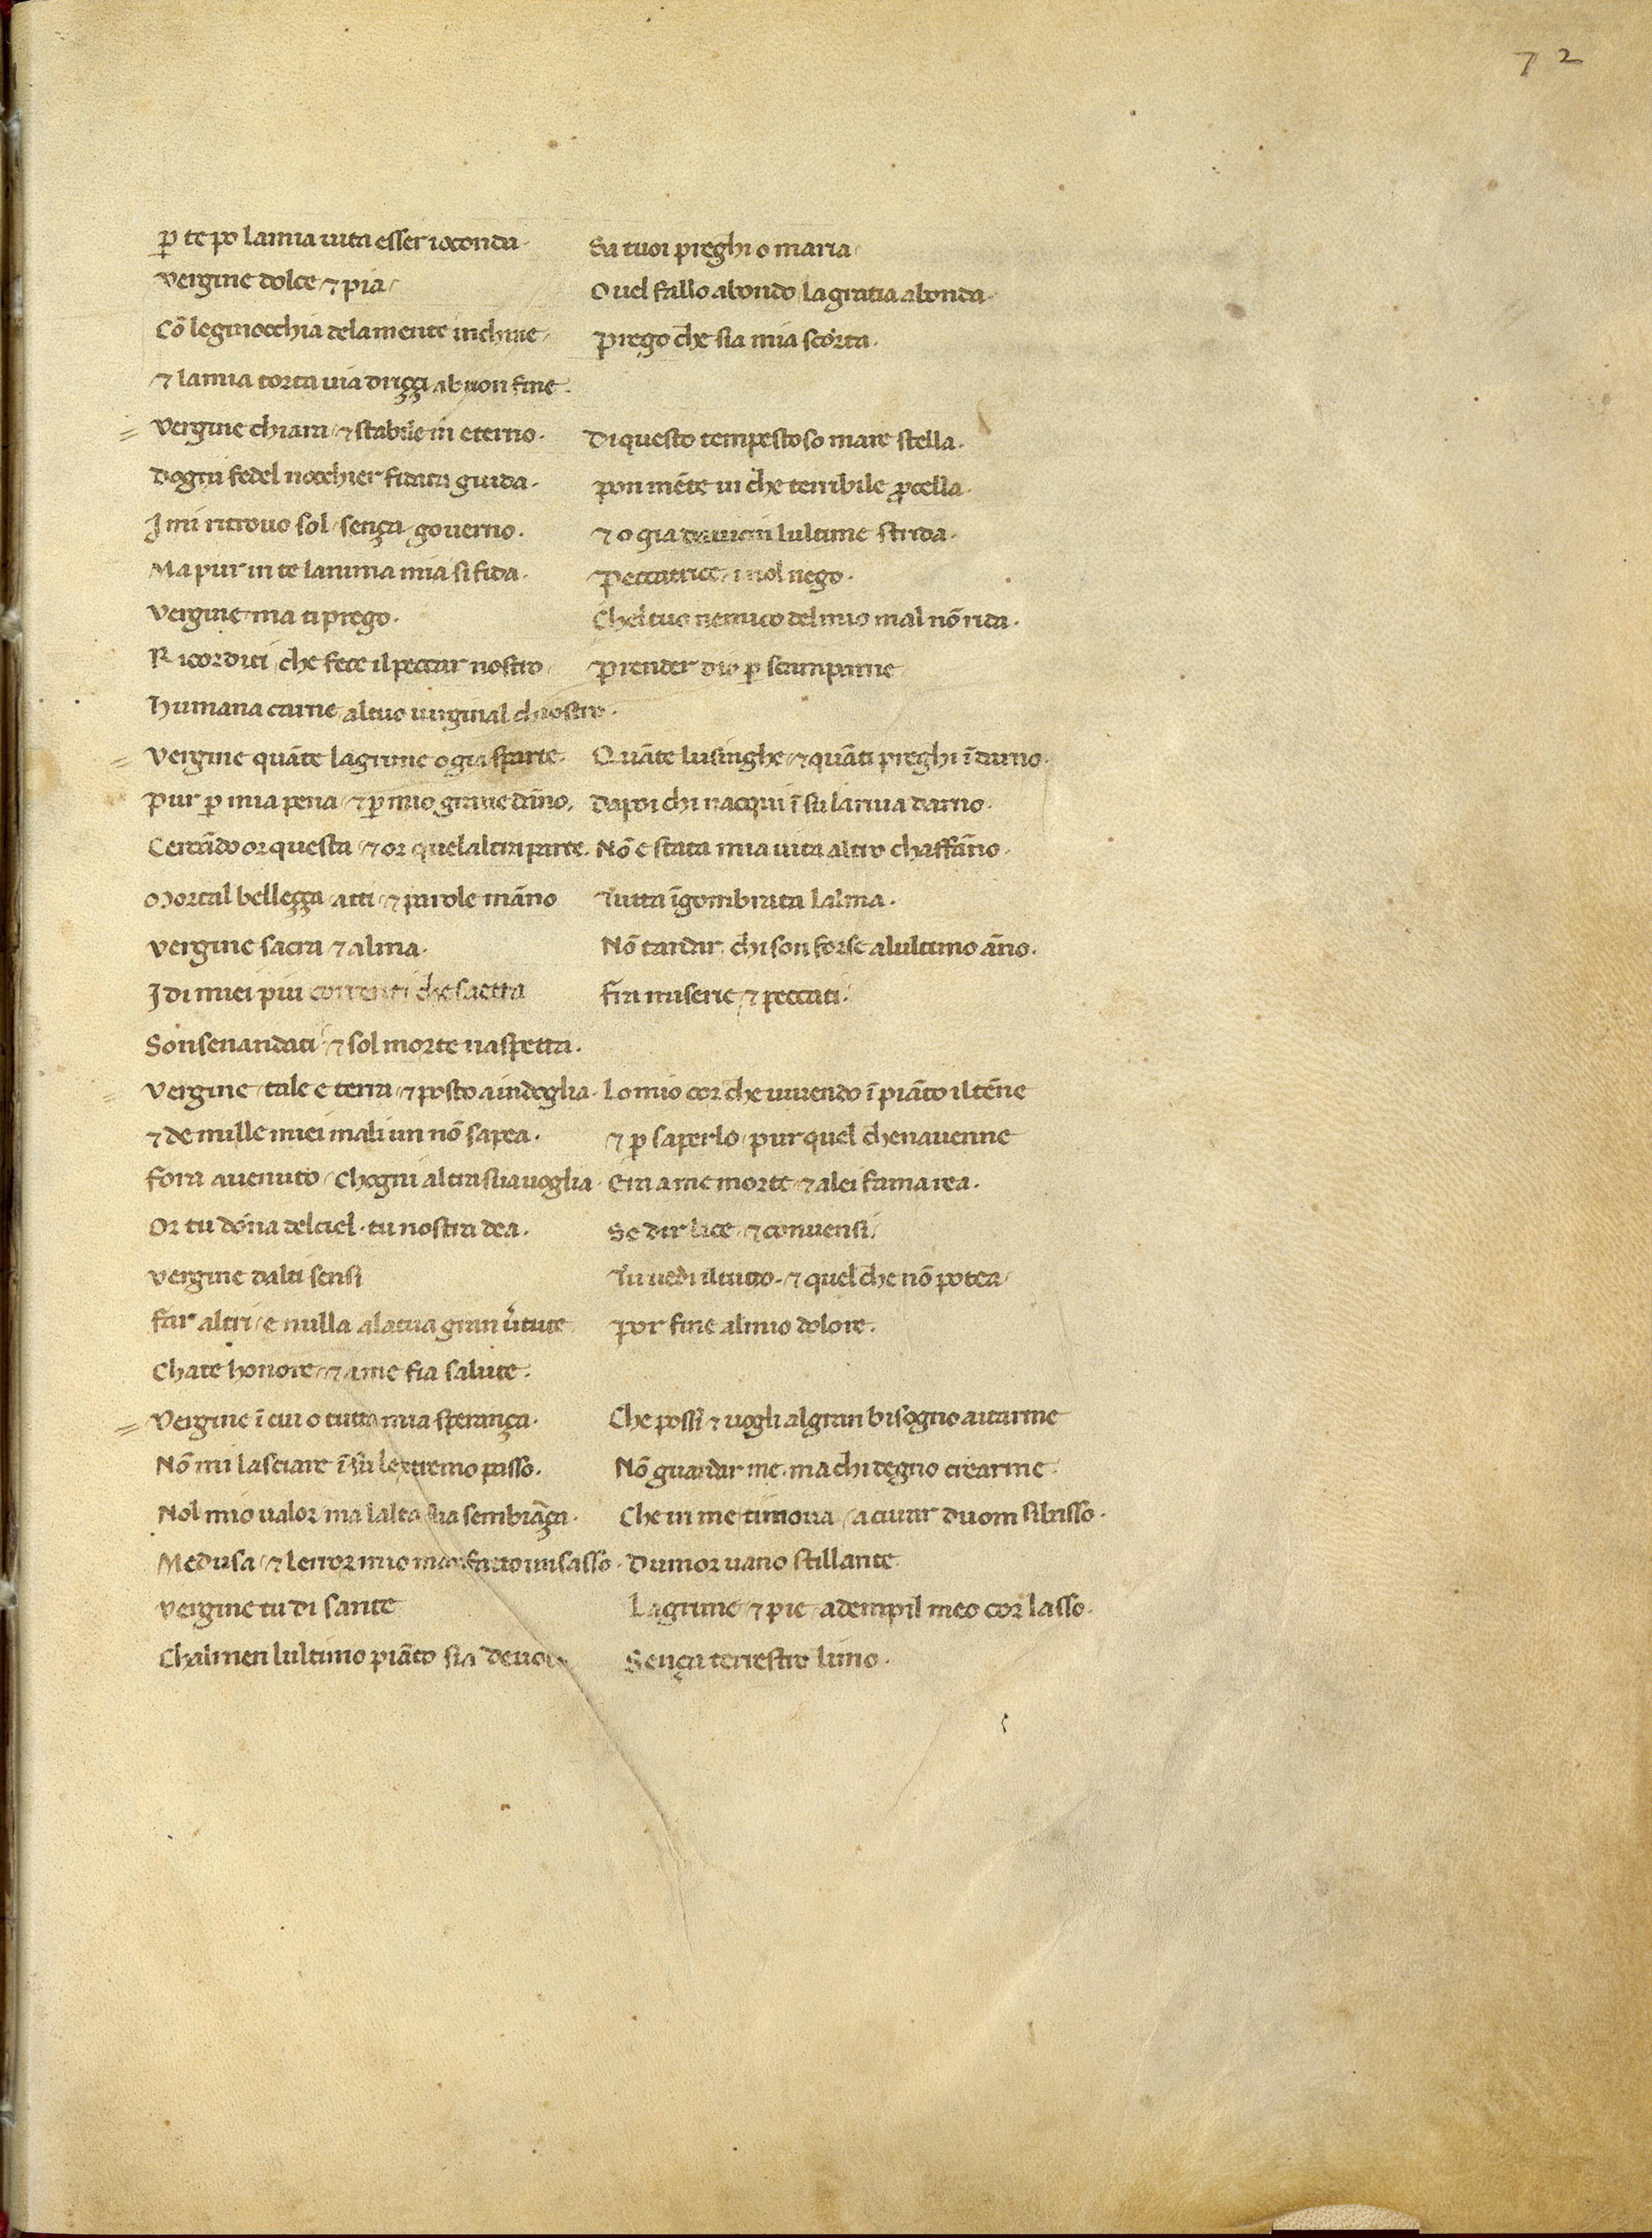 72
p̱ te po lamia uita esser ioconda· Sa tuoi preghi o maria/
Vergine dolce /⁊ pia/ Ouel fallo abondo /la gratia abonda·
Cō le ginocchia dela mente inchine/ Prego che sia mia scorta·
⁊ la mia torta uia driççi a buon fine·
Vergine chiara /⁊ stabile in eterno· Di questo tempestoso mare stella·
Dogni fedel nocchier fidata guida· Pon mēte in che terribile ꝓcella·
I mi ritrouo sol /sença gouerno· ⁊ o gia da uicin lultime strida·
Ma pur in te lanima mia si fida· Peccatrice /i nol nego·
Vergine /ma ti prego· Chel tuo nemico del mio mal nō rida·
Ricorditi /che fece il peccar nostro/ Prender dio p̱ scamparne
Humana carne /al tuo uirginal chiostro·
Vergine quāte lagrime o gia sparte· Quāte lusinghe /⁊ quāti preghi īdarno·
Pur p̱ mia pena /⁊ p̱ mio graue dāno· Da poi chi nacqui ī su la riua darno·
Cercādo or questa /⁊ or quel altra parte· Nō e stata mia uita altro chaffāno·
Mortal belleçça /atti /⁊ parole māno Tutta īgombrata lalma·
Vergine sacra /⁊ alma· Nō tardar chi son forse alultimo āno·
I di miei piu correnti che saetta Fra miserie /⁊ peccati·
Sonsenandati /⁊ sol morte naspetta·
Vergine /tale e terra /⁊ posto a in doglia· Lo mio cor che uiuendo ī piāto il tēne
⁊ de mille miei mali un nō sapea· ⁊ p̱ saperlo /pur quel che nauenne
Fora auenuto /chogni altra sua uoglia· Era a me morte /⁊ a lei fama rea·
Or tu dōna del ciel· tu nostra dea· Se dir lice /⁊ conuensi/
Vergine dalti sensi Tu uedi il tutto· ⁊ quel che nō potea/
Far altri /e nulla a la tua gran ūtute Por fine al mio dolore·
Cha te honore /⁊ a me fia salute·
Vergine ī cui o tutta mia sperança· Che possi ⁊ uogli al gran bisogno aitarme
Nō mi lasciare ī su lextremo passo· Nō guardar me· ma chi degno crearme·
Nol mio ualor /ma lalta sua sembiāça· Che in me /ti moua /a curar duom si basso·
Medusa /⁊ lerror mio man facto un sasso· Dumor uano stillante·
Vergine tu di sante Lagrime /⁊ pie /adempil meo cor lasso·
Chalmen lultimo piāto sia deuoto Sença terrestro limo·